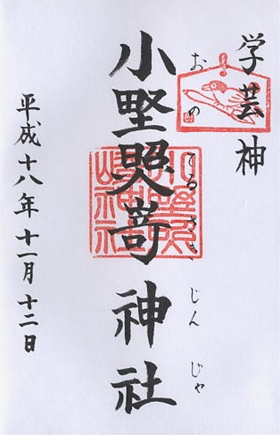 学芸神
小野照崎神社
おの てるさき じんじゃ
小野照崎神社
平成十八年十一月十二日